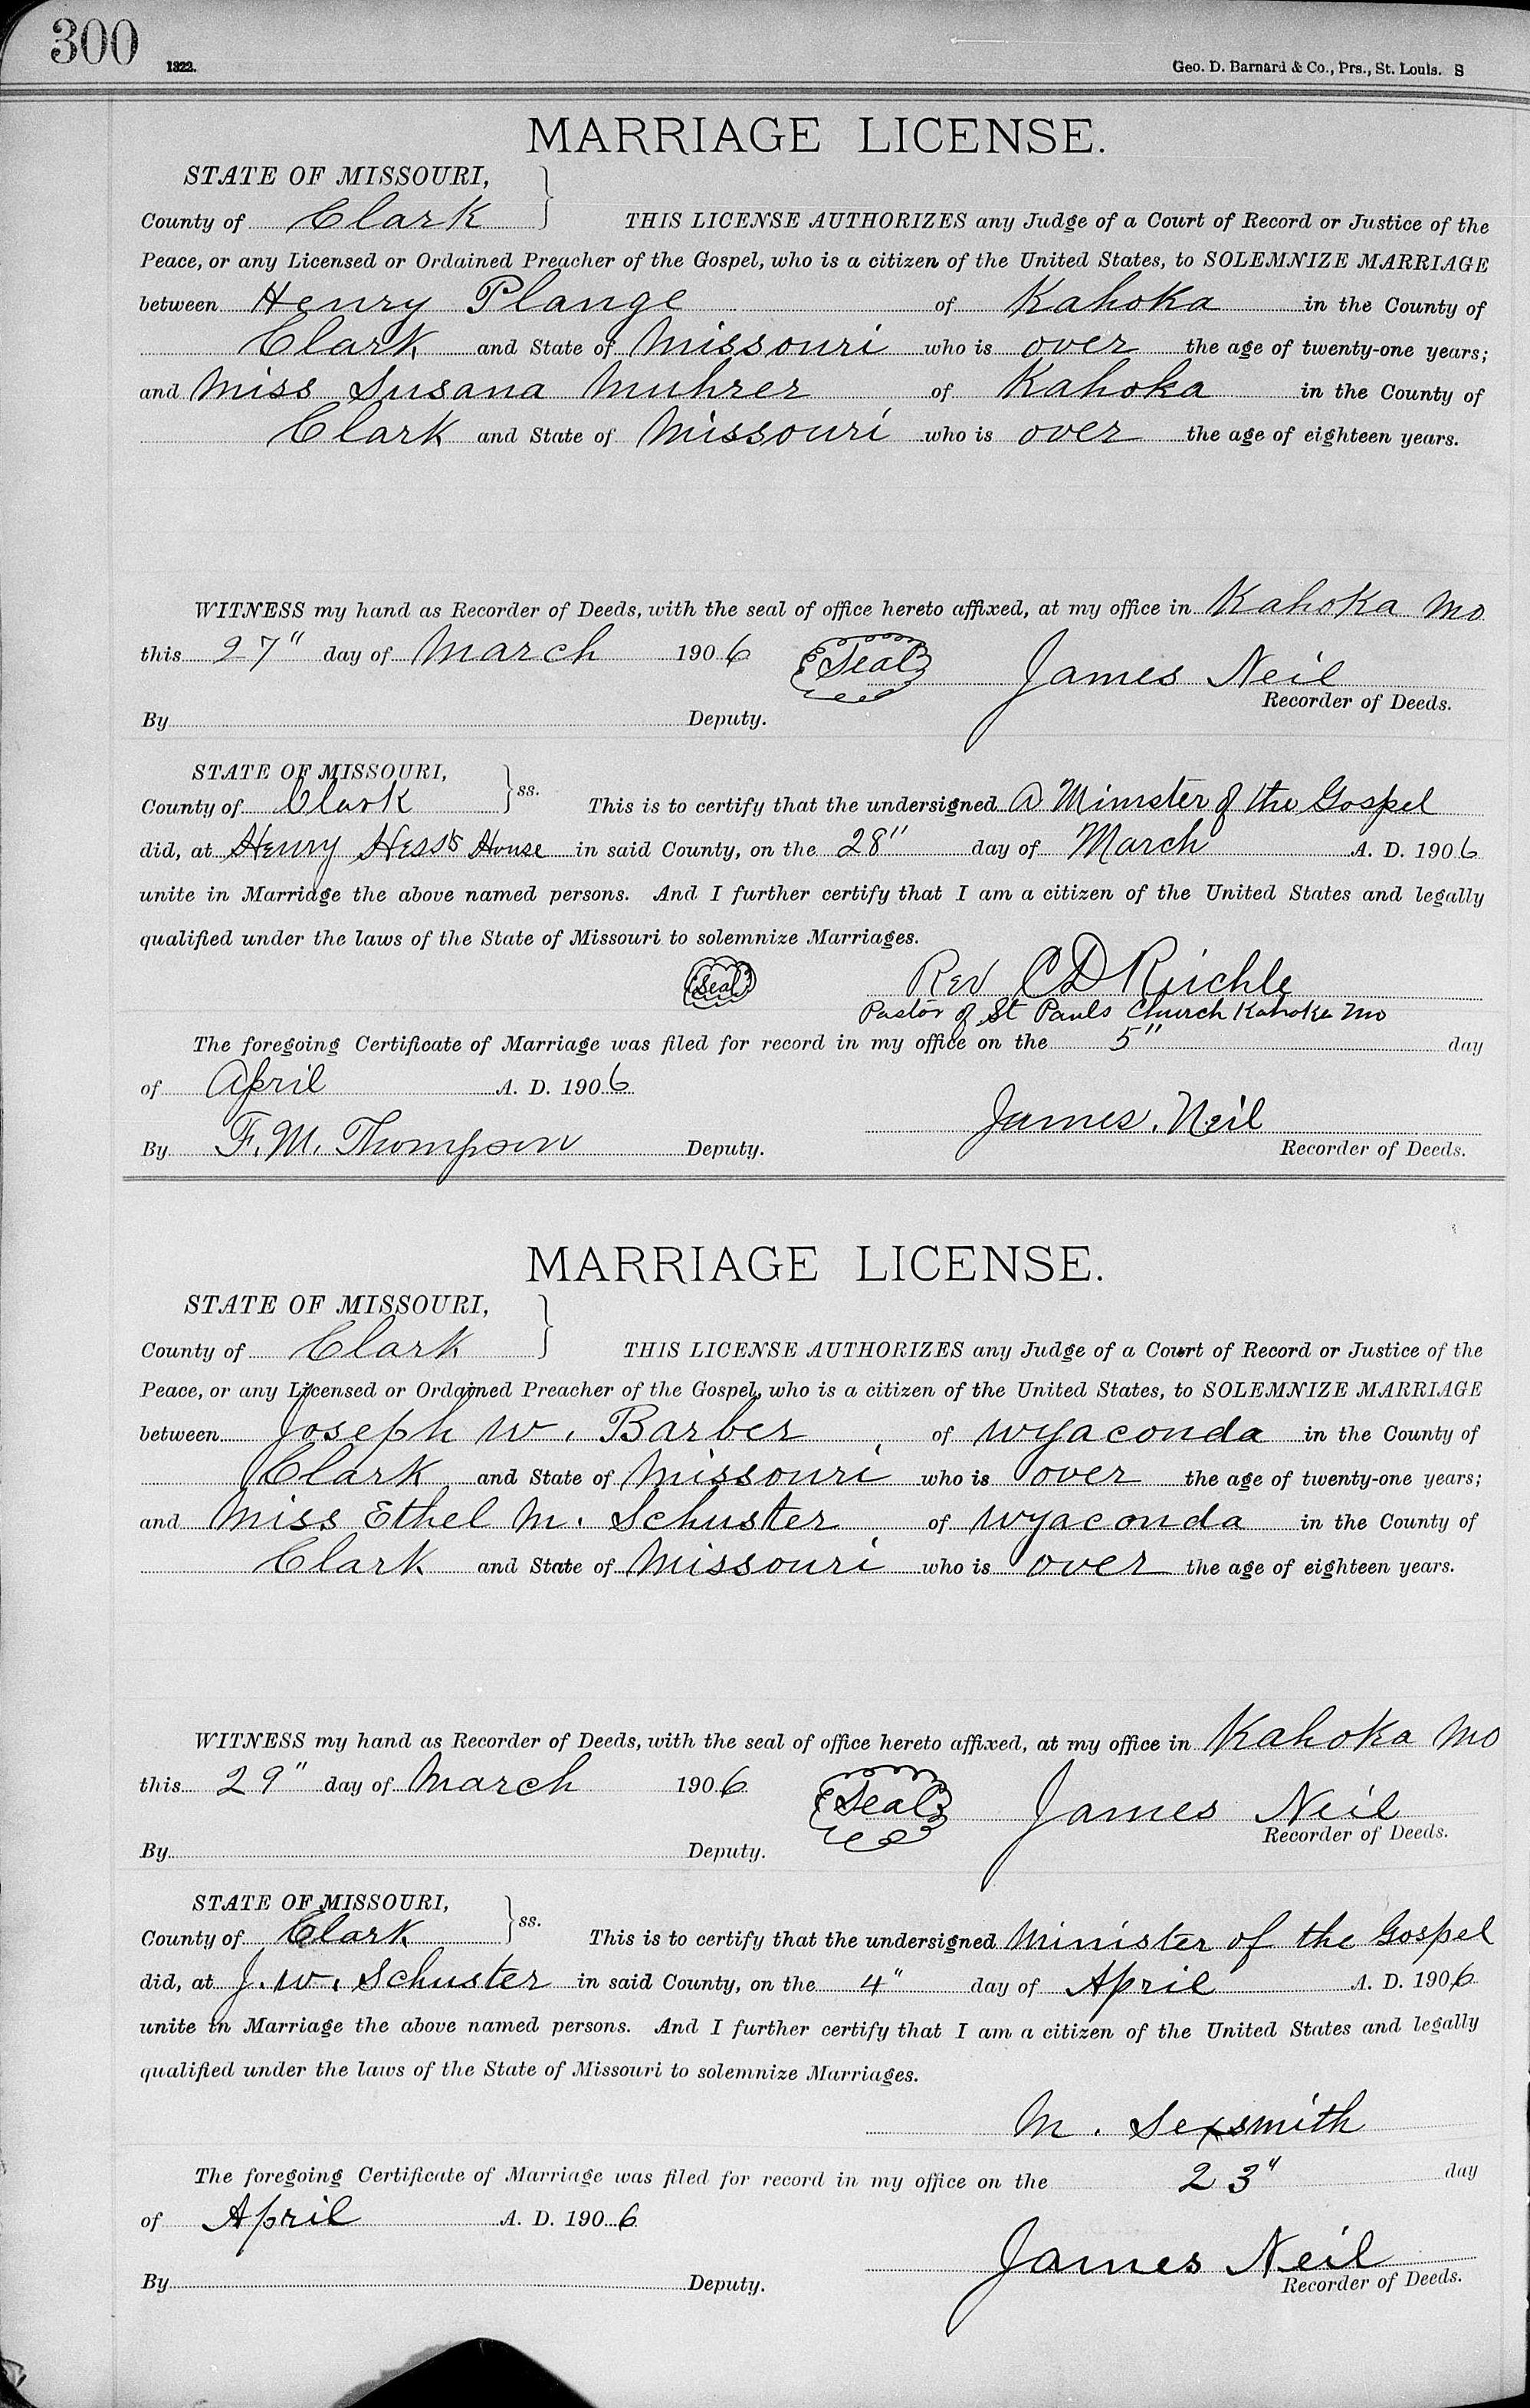 300
1322.
Geo. D. Barnard & Co., Prs., St. Louis. S
MARRIAGE LICENSE.
STATE OF MISSOURI,
County of Clark } THIS LICENSE AUTHORIZES any Judge of a Court of Record or Justice of the
Peace, or any Licensed or Ordained Preacher of the Gospel, who is a citizen of the United States, to SOLEMNIZE MARRIAGE
between Henry Plange of Kahoka in the County of
Clark and State of Missouri who is over the age of twenty-one years;
and Miss Susana Muhrer of Kahoka in the County of
Clark and State of Missouri who is over the age of eighteen years.
WITNESS my hand as Recorder of Deeds, with the seal of office hereto affixed, at my office in Kahoka Mo
this 27" day of March 1906 Seal James Neil
Recorder of Deeds.
By Deputy.
STATE OF MISSOURI,
County of Clark } ss. This is to certify that the undersigned A Minister of the Gospel
did, at Henry Hess's House in said County, on the 28" day of March A. D. 1906
unite in Marriage the above named persons. And I further certify that I am a citizen of the United States and legally
qualified under the laws of the State of Missouri to solemnize Marriages.
Seal Rev C D
Pastor of St Pauls Church Kahoka Mo
The foregoing Certificate of Marriage was filed for record in my office on the 5" day
of April A. D. 1906
James. Neil
By F. M. Thompson Deputy. Recorder of Deeds.
MARRIAGE LICENSE.
STATE OF MISSOURI,
County of Clark } THIS LICENSE AUTHORIZES any Judge of a Court of Record or Justice of the
Peace, or any Licensed or Ordained Preacher of the Gospel, who is a citizen of the United States, to SOLEMNIZE MARRIAGE
between Joseph W. Barber of Wyaconda in the County of
Clark and State of Missouri who is over the age of twenty-one years;
and Miss Ethel M. Schuster of Wyaconda in the County of
Clark and State of Missouri who is over the age of eighteen years.
WITNESS my hand as Recorder of Deeds, with the seal of office hereto affixed, at my office in Kahoka Mo
this 29" day of March 1906 Seal James Neil
Recorder of Deeds.
By Deputy.
STATE OF MISSOURI,
County of Clark } ss. This is to certify that the undersigned Minister of the Gospel
did, at J. W. Schuster in said County, on the 4" day of April A. D. 1906
unite in Marriage the above named persons. And I further certify that I am a citizen of the United States and legally
qualified under the laws of the State of Missouri to solemnize Marriages.
M. Sexsmith
The foregoing Certificate of Marriage was filed for record in my office on the 23" day
of April A. D. 1906
James Neil
By Deputy. Recorder of Deeds.